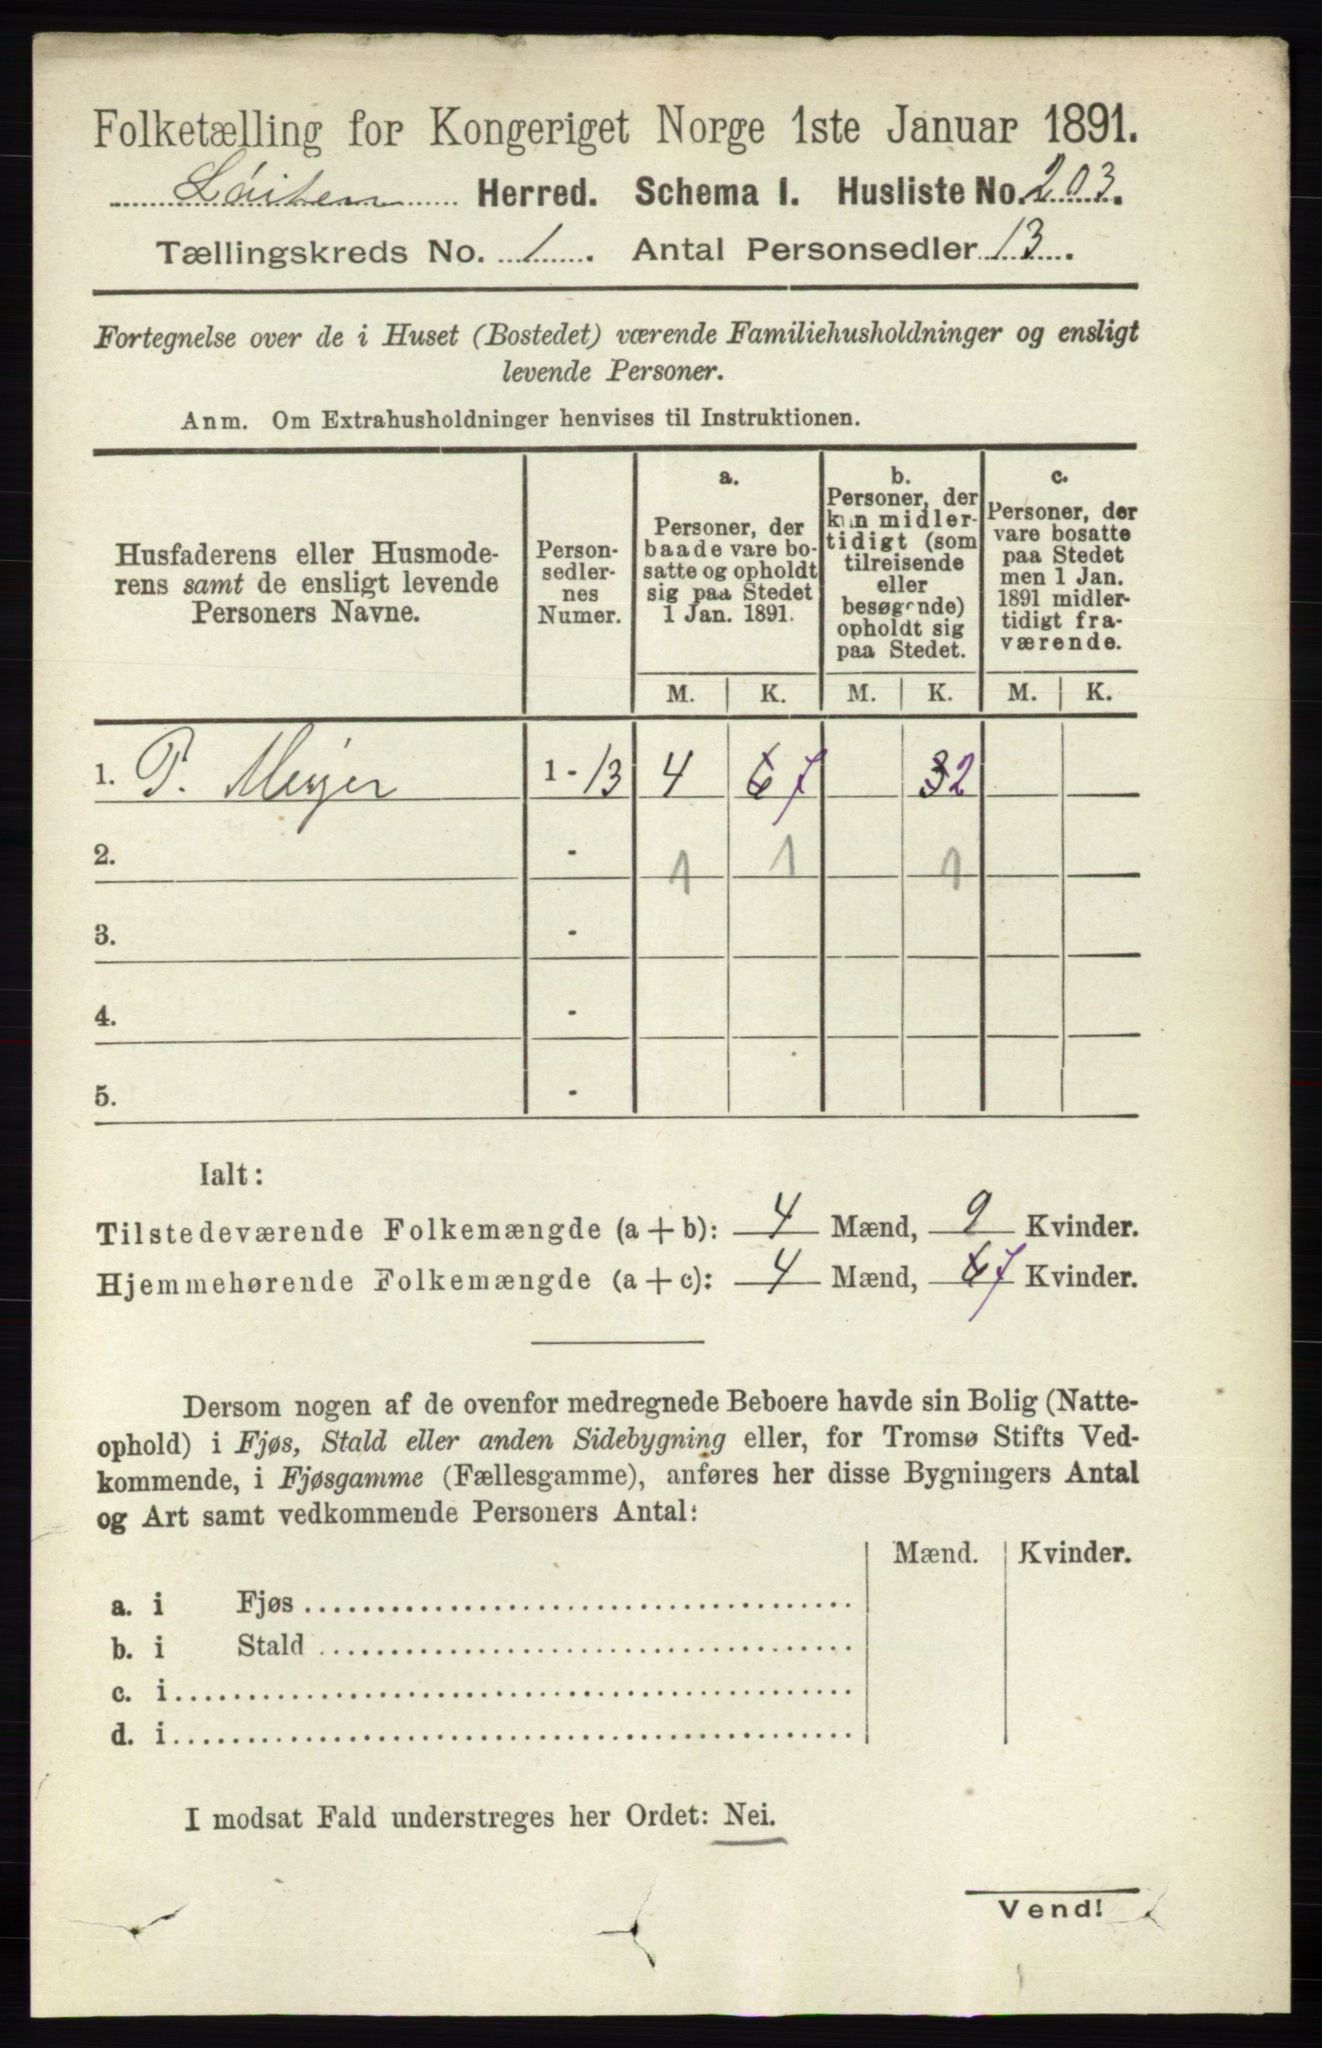 Folketælling for Kongeriget Norge 1ste Januar 1891.
Løiten Herred. Schema I. Husliste No. 203.
Tællingskreds No. 1. Antal Personsedler 13.
Fortegnelse over de i Huset (Bostedet) værende Familiehusholdninger og ensligt
levende Personer.
Anm. Om Extrahusholdninger henvises til Instruktionen.
Husfaderens eller Husmode-
rens samt de ensligt levende
Personers Navne.
Person-
sedler-
nes
Numer.
a.
Personer, der
baade vare bo-
satte og opholdt
sig paa Stedet
1 Jan. 1891.
b.
Personer, der
kun midler-
tidigt (som
tilreisende
eller
besøgende)
opholdt sig
paa Stedet.
c.
Personer, der
vare bosatte
paa Stedet
men 1 Jan.
1891 midler-
tidigt fra-
værende.
M. K. M. K. M. K.
1. P. Meyer 1 - 13 4 6 7 3 2
2. - 1 1 1
3. -
4. -
5. -
Ialt:
Tilstedeværende Folkemængde (a + b): 4 Mænd, 9 Kvinder.
Hjemmehørende Folkemængde (a + c): 4 Mænd, 6 7 Kvinder.
Dersom nogen af de ovenfor medregnede Beboere havde sin Bolig (Natte-
ophold) i Fjøs, Stald eller anden Sidebygning eller, for Tromsø Stifts Ved-
kommende, i Fjøsgamme (Fællesgamme), anføres her disse Bygningers Antal
og Art samt vedkommende Personers Antal:
Mænd. Kvinder.
a. i Fjøs
b. i Stald
c. i
d. i
I modsat Fald understreges her Ordet: Nei.
Vend!